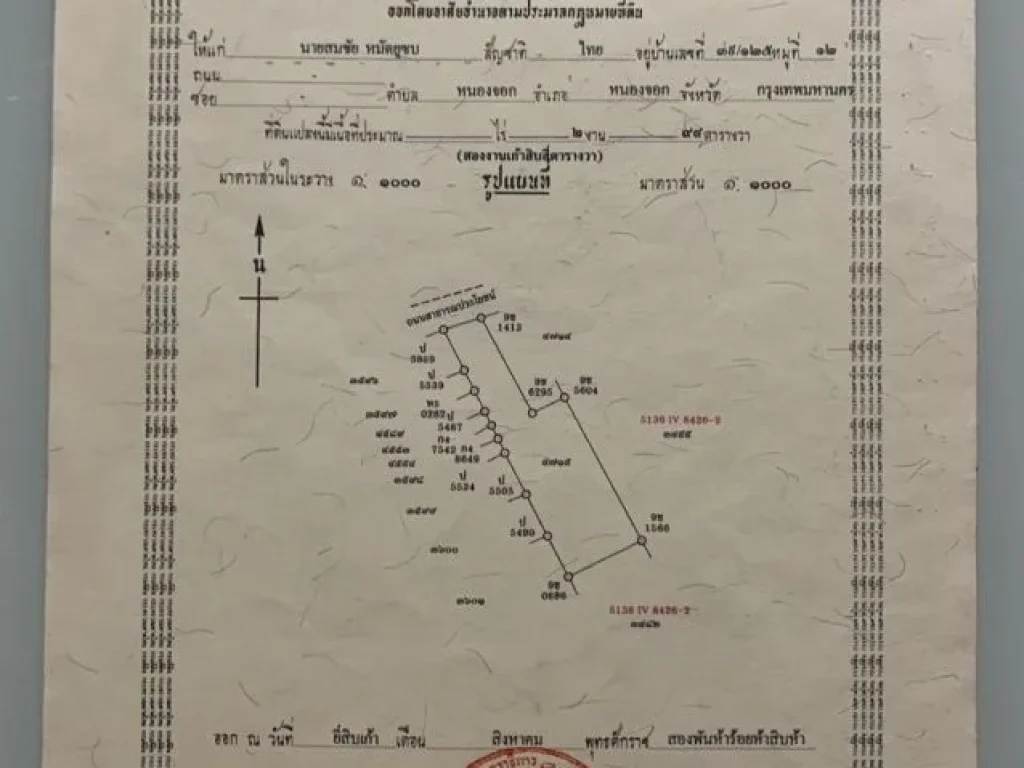 ออกโดยอาศัยอำนาจตามประมวลกฎหมายที่ดิน
ให้แก่ นายสมชัย หมัดยูซบ สัญชาติ ไทย อยู่บ้านเลขที่ ๓๙/๑๒๕ หมู่ที่ ๑๒
ถนน
ซอย ตำบล หนองจอก อำเภอ หนองจอก จังหวัด กรุงเทพมหานคร
ที่ดินแปลงนี้มีเนื้อที่ประมาณ ไร่ ๒ งาน ๙๔ ตารางวา
(สองงานเก้าสิบสี่ตารางวา)
มาตราส่วนในระวาง ๑: ๑๐๐๐ รูปแผนที่ มาตราส่วน ๑: ๑๐๐๐
น
ถนนสาธารณประโยชน์
1413
๔๗๑๔
ป
5869
ป
5539
๓๕๙๖
6295
5604
0282
ป
5467
๓๕๙๗
5136 IV 8426-2
๓๔๕๕
7542
8649
๔๕๕๓
๔๕๕๔
๓๕๙๘
ป
5534
ป
5505
๔๗๑๕
๓๕๙๙
ป
5490
1566
๓๖๐๐
0686
๓๖๐๑
5136 IV 8426-2
๓๔๘๒
ออก ณ วันที่ ยี่สิบเก้า เดือน สิงหาคม พุทธศักราช สองพันห้าร้อยห้าสิบห้า